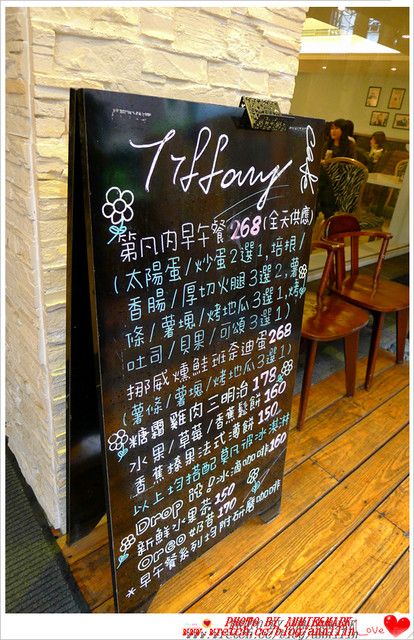 Tiffany cafe
第凡內早午餐 268 (全天供應)
(太陽蛋/炒蛋2選1, 培根/
香腸/厚切火腿3選2, 薯
條/薯塊/烤地瓜3選1, 烤
吐司/貝果/可頌3選1)
挪威燻鮭班尼迪蛋 268
(薯條/薯塊/烤地瓜3選1)
糖霜雞肉三明治 178
水果/草莓/香蕉鬆餅 160
香蕉榛果法式薄餅 150
以上均搭配莫凡彼冰淇淋
Drop 冰滴咖啡 160
新鮮水果茶 150
Oreo 奶昔 170
*早午餐系列均附研磨咖啡
PHOTO BY ANNIE&MARK